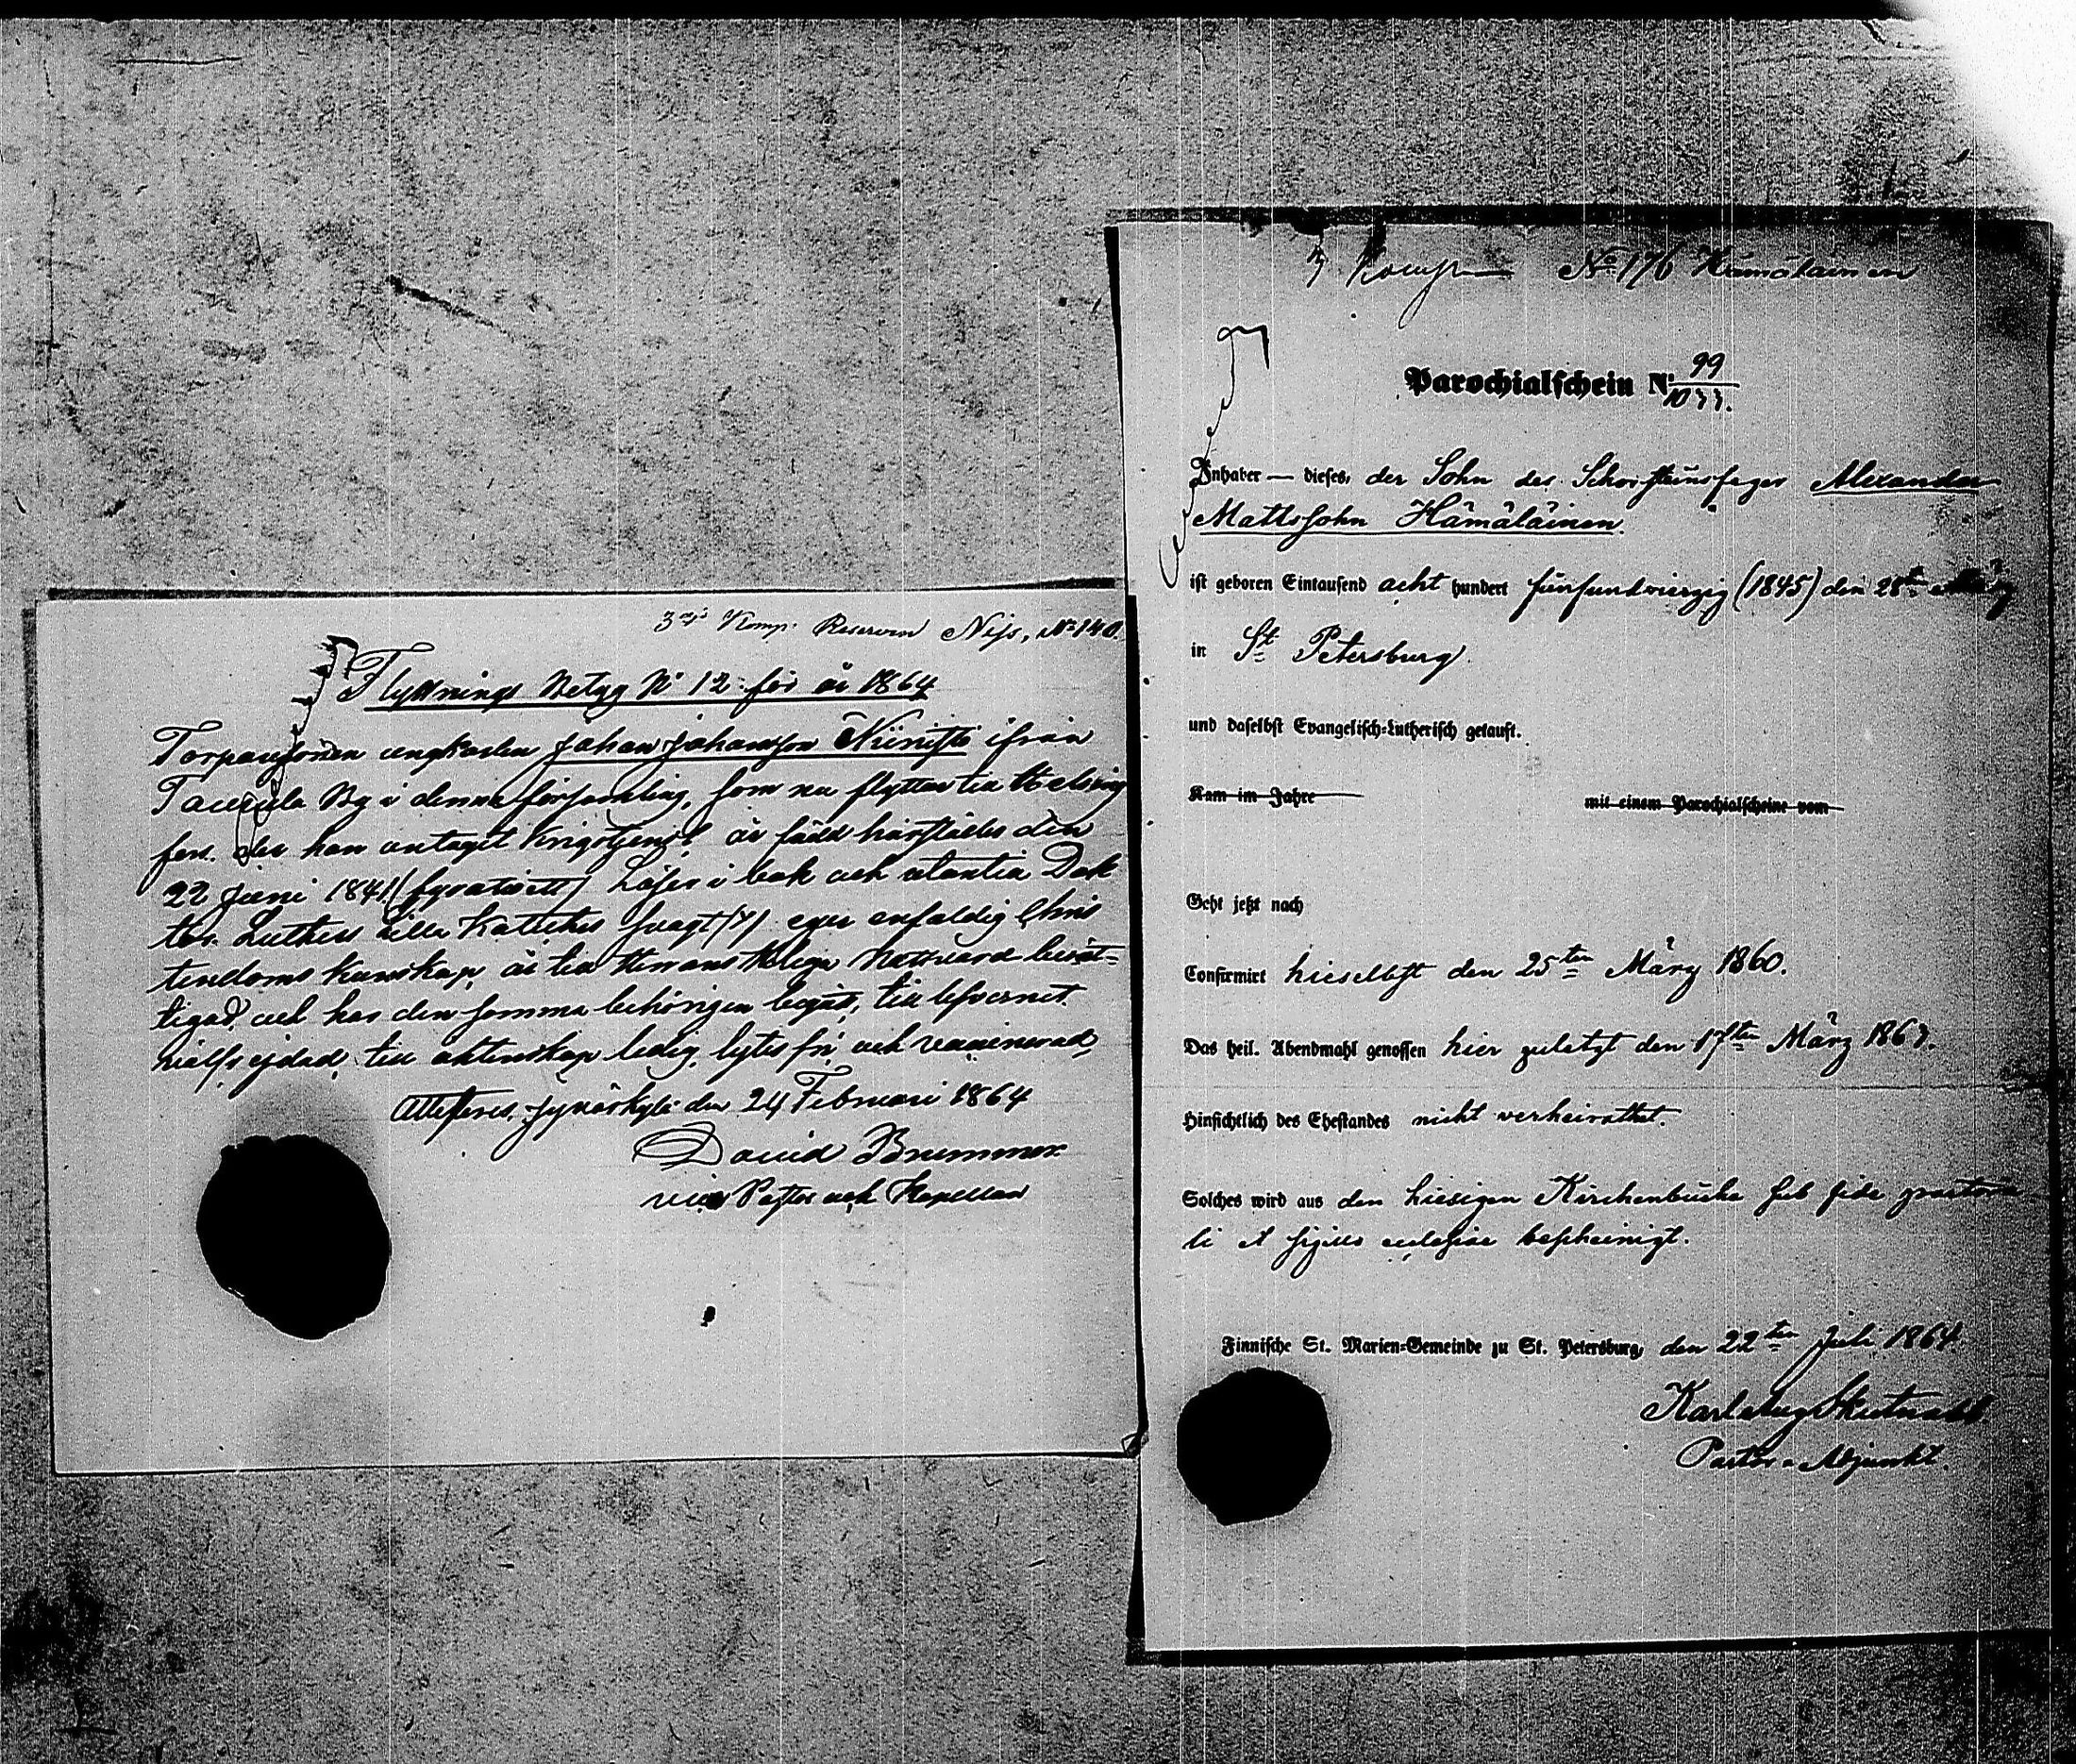 3dje Komp. Reserven Niss, No 140.
Flyttnings Betyg No 12 för år 1864
Torparesonen ungkarlen Johan Johansson Niinistö ifrån
By i denna församling, som nu flyttar till Helsing
fors. der han antagit krigstjenst är född härstädes den
22 Juni 1841 (fyrationett) Läser i bok och utantill Dok
tor Luthers Lilla Kateches svagt eger enfaldig Chris
tendoms kunskap, är till Herrans Heliga Nattvard berät=
tigad, och har den samma behörigen begått, till lefvernet
till äktenskap ledig, lytes fri och vaccinerad,
Attesteras, Jyväskylä den 24 Februari 1864
David Brummer
vice Pastor och Kapellan
3 No 176 Hämäläinen
Parochialschein No 99/1033.
Inhaber — dieses, der Sohn des Schornsteinsfeger Alexander
Mattssohn Hämäläinen.
ist geboren Eintausend acht hundert fünfundvierzig (1845) den 28ten März
in St Petersburg.
und daselbst Evangelisch-Lutherisch getauft.
Kam im Jahre mit einem Parochialscheine vom
Geht jetzt nach
Confirmirt hieselbst den 25ten März 1860.
Das heil. Abendmahl genossen hier zuletzt den 17ten März 1863.
Hinsichtlich des Ehestandes nicht verheirathet.
Solches wird aus den hiesigen Kirchenbuche sub fide pastora
li et sigillo ecclesiae bescheinigt.
Finnische St. Marien-Gemeinde zu St. Petersburg, den 22ten Juli 1864.
Karl Aug
Pastor-Adjunkt.